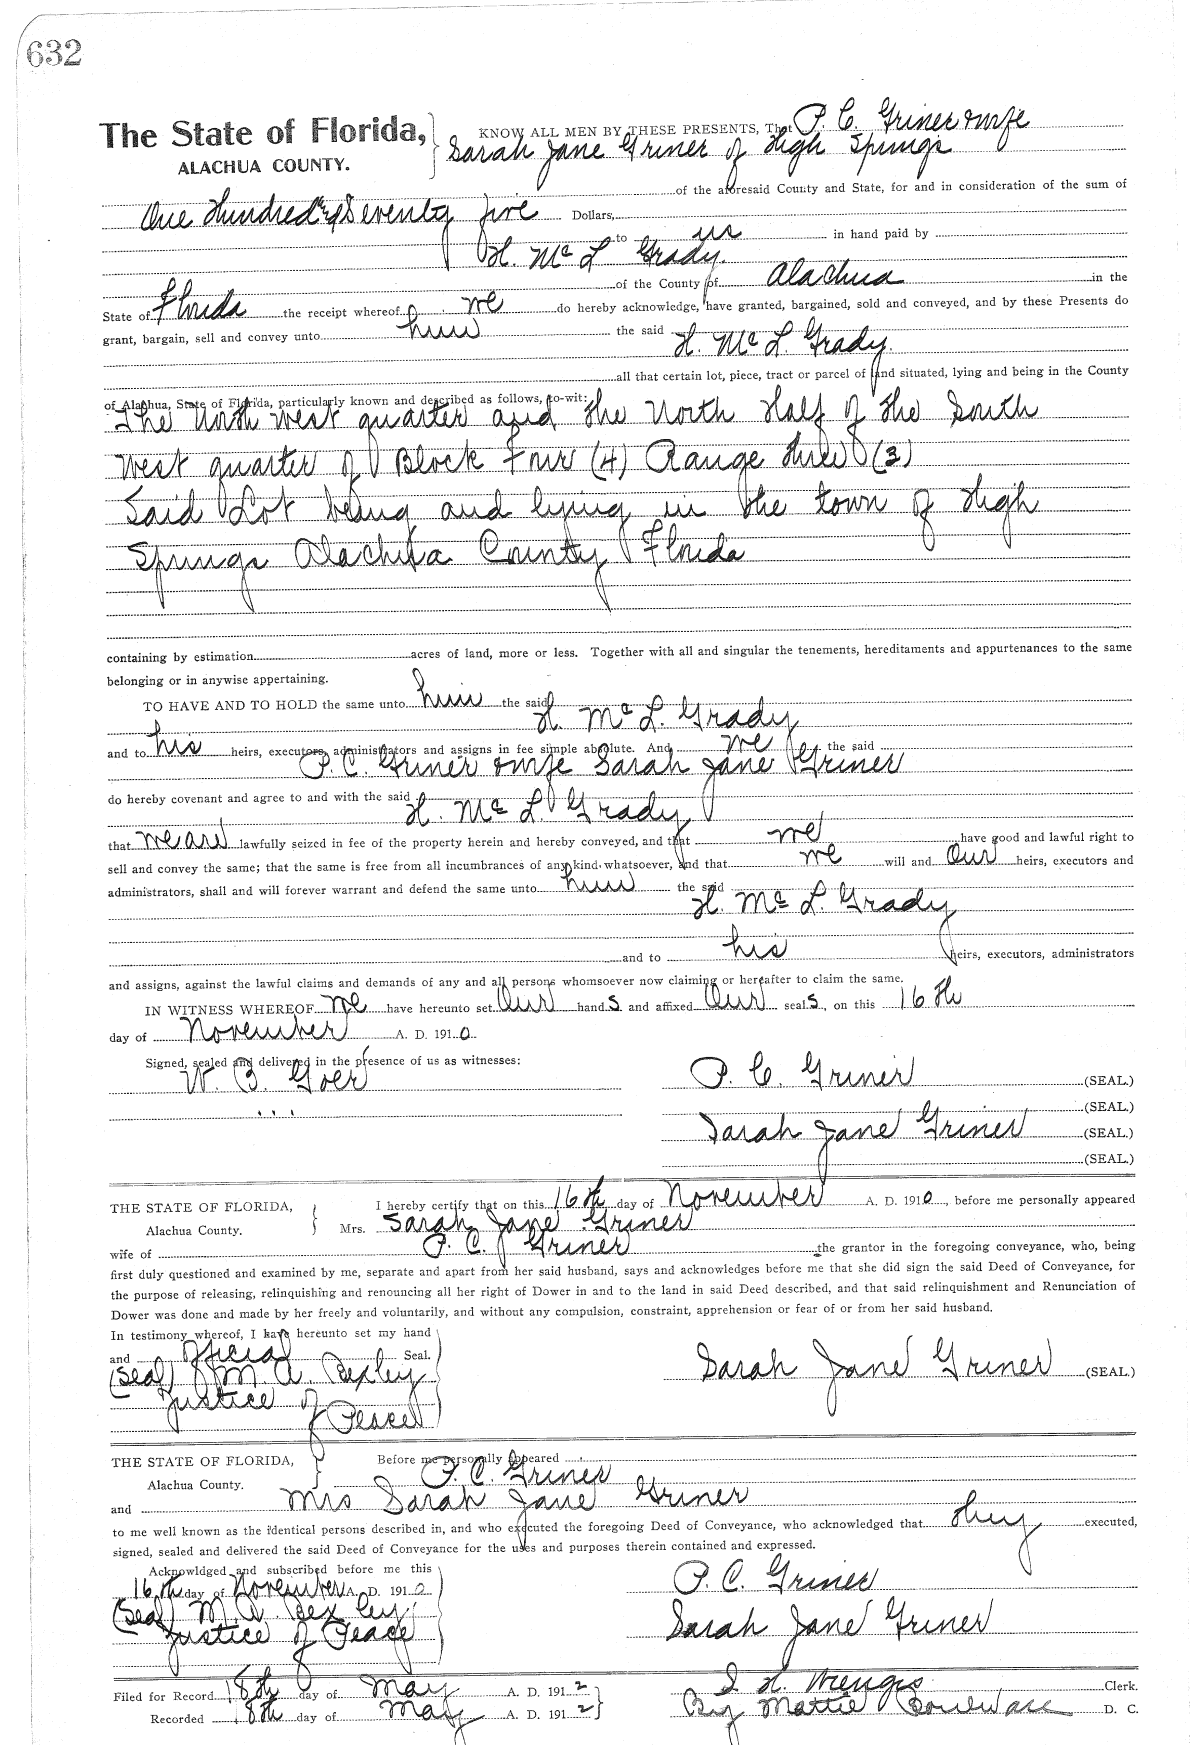 632
The State of Florida, KNOW ALL MEN BY THESE PRESENTS, That P. C. Griner & wife
ALACHUA COUNTY. Sarah Jane Griner of High Springs
of the aforesaid County and State, for and in consideration of the sum of
One Hundred & Seventy five Dollars,
to us in hand paid by
H. Mc L Grady.
of the County of Alachua in the
State of Florida the receipt whereof we do hereby acknowledge, have granted, bargained, sold and conveyed, and by these Presents do
grant, bargain, sell and convey unto him the said H. Mc L. Grady.
all that certain lot, piece, tract or parcel of land situated, lying and being in the County
of Alachua, State of Florida, particularly known and described as follows, to-wit:
The North west quarter and the North Half of the South
West quarter of Block Four (4) Range three (3)
Said Lot being and lying in the town of High
Springs Alachua County Florida
containing by estimation acres of land, more or less. Together with all and singular the tenements, hereditaments and appurtenances to the same
belonging or in anywise appertaining.
TO HAVE AND TO HOLD the same unto him the said H. Mc L. Grady
and to his heirs, executors, administrators and assigns in fee simple absolute. And we the said
P. C. Griner & wife Sarah Jane Griner
do hereby covenant and agree to and with the said H. Mc L. Grady
that we are lawfully seized in fee of the property herein and hereby conveyed, and that we have good and lawful right to
sell and convey the same; that the same is free from all incumbrances of any kind whatsoever, and that we will and Our heirs, executors and
administrators, shall and will forever warrant and defend the same unto him the said
H. Mc L. Grady
and to his heirs, executors, administrators
and assigns, against the lawful claims and demands of any and all persons whomsoever now claiming or hereafter to claim the same.
IN WITNESS WHEREOF we have hereunto set Our hands and affixed Our seals, on this 16th
day of November A. D. 1910.
Signed, sealed and delivered in the presence of us as witnesses:
W. B. P. C. Griner (SEAL.)
(SEAL.)
Sarah Jane Griner (SEAL.)
(SEAL.)
THE STATE OF FLORIDA, I hereby certify that on this 16th day of November A. D. 1910, before me personally appeared
Alachua County. Mrs. Sarah Jane Griner
wife of P. C. Griner the grantor in the foregoing conveyance, who, being
first duly questioned and examined by me, separate and apart from her said husband, says and acknowledges before me that she did sign the said Deed of Conveyance, for
the purpose of releasing, relinquishing and renouncing all her right of Dower in and to the land in said Deed described, and that said relinquishment and Renunciation of
Dower was done and made by her freely and voluntarily, and without any compulsion, constraint, apprehension or fear of or from her said husband.
In testimony whereof, I have hereunto set my hand
and Official Seal.
(Seal) M. A. Sarah Jane Griner (SEAL.)
Justice of
Peace
THE STATE OF FLORIDA, Before me personally appeared
Alachua County. P. C. Griner
and Mrs Sarah Jane Griner
to me well known as the identical persons described in, and who executed the foregoing Deed of Conveyance, who acknowledged that they executed,
signed, sealed and delivered the said Deed of Conveyance for the uses and purposes therein contained and expressed.
Acknowldged and subscribed before me this
16th day of November A. D. 1910 P. C. Griner
(Seal) M. A.
Justice of Peace Sarah Jane Griner
Filed for Record 18th day of May A. D. 1912 Clerk.
Recorded 18th day of May A. D. 1912 By Mattie D. C.